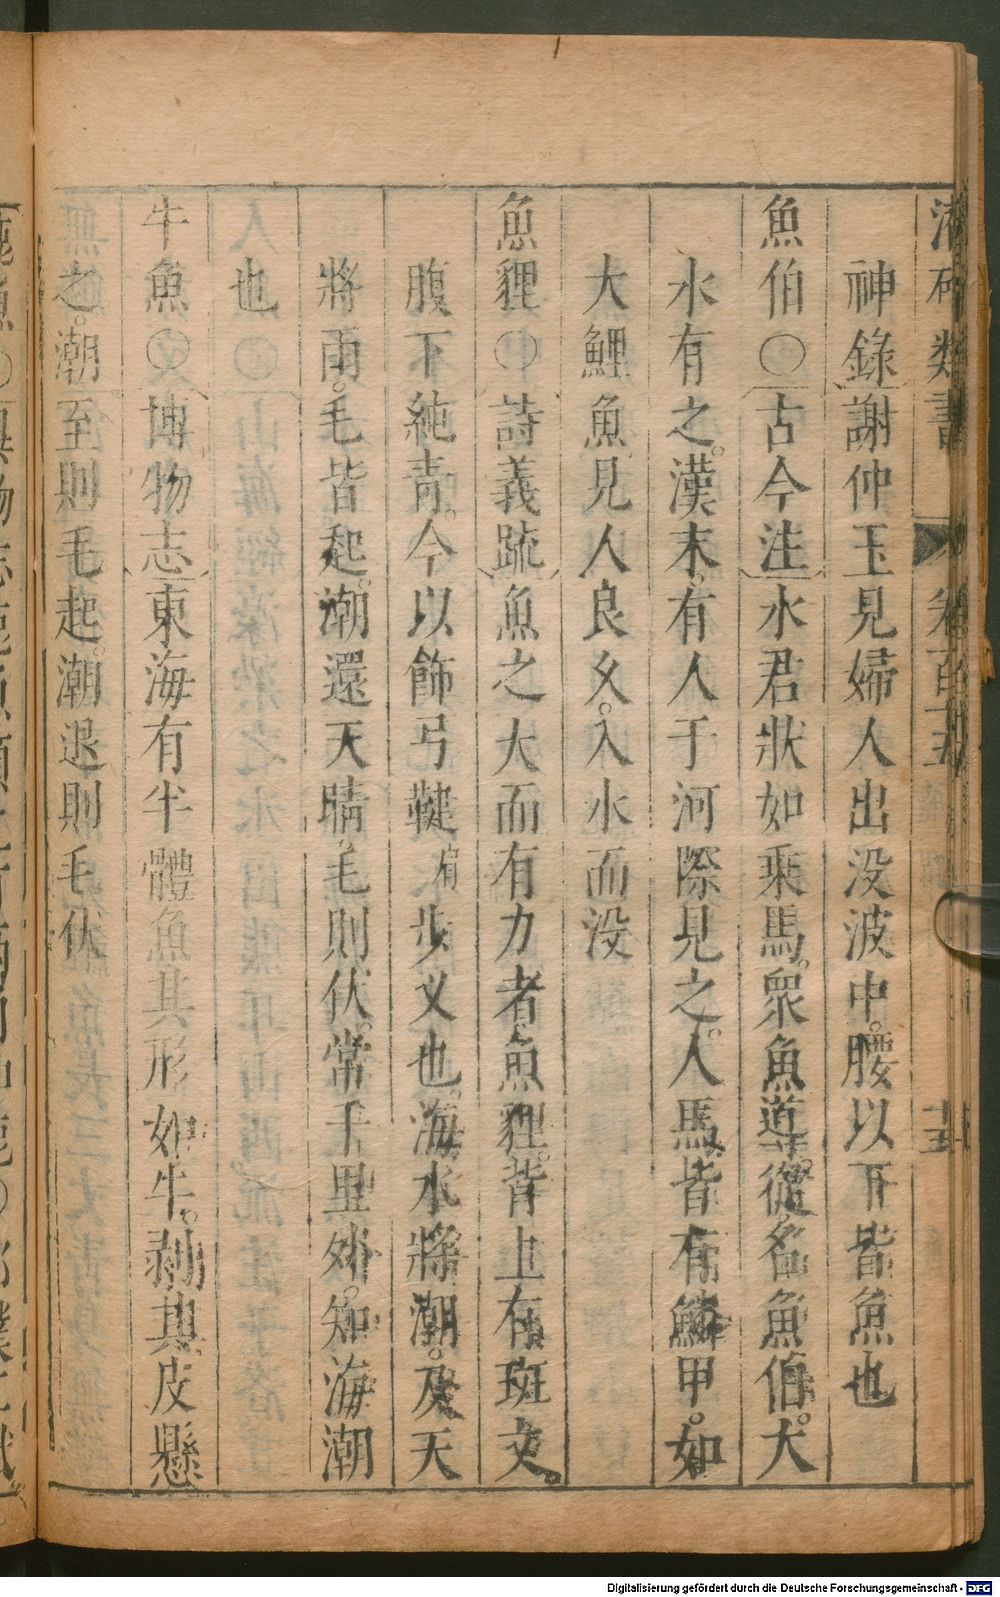 潛確類書 卷百十五 十五
神錄謝仲玉見婦人出没波中。腰以下皆魚也
魚伯〇古今注水君狀如乘馬。衆魚導從。名魚伯。大
水有之。漢末。有人于河際見之。人馬皆有鱗甲。如
大鯉魚見人良久。入水而没
魚貍〇詩義疏魚之大而有力者魚貍。背上有斑文。
腹下純青。今以飾弓鞬步义也。海水將潮。及天
將雨。毛皆起。潮還天晴。毛則伏。常千里外。知海潮
也
牛魚〇博物志東海有半體魚其形如牛。剥其皮懸
之。潮至則毛起。潮退則毛伏
Digitalisierung gefördert durch die Deutsche Forschungsgemeinschaft - DFG